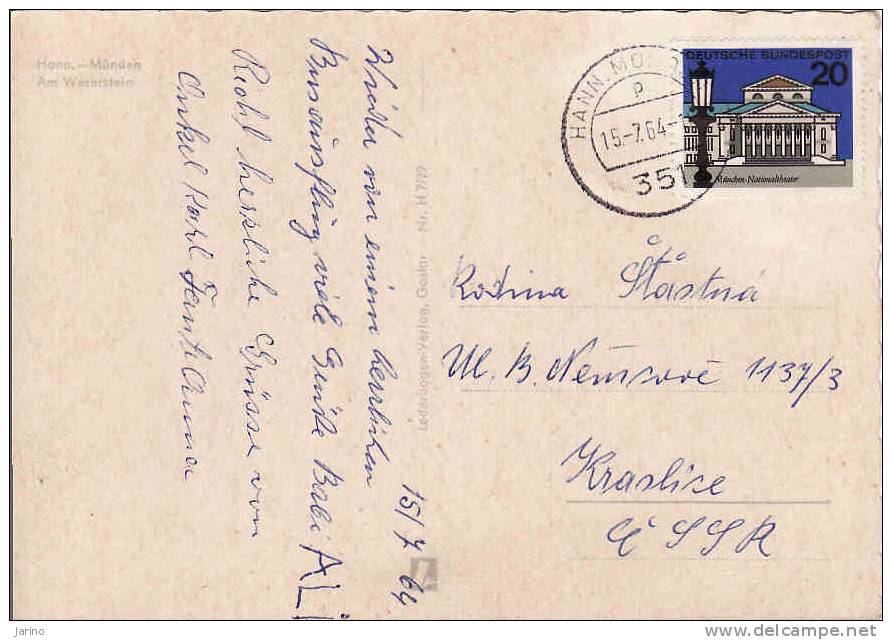 Hann. - Münden
Am Weserstein
15/7 64
Wieder von einem herrlichen
Busausflug viele Grüße Babi ALI
Recht herzliche Grüsse von
Onkel Karl Tante Anna
Lederbogen-Verlag, Goslar Nr. H 7/99
HANN. MÜND
p
15.-7.64-1
351
DEUTSCHE BUNDESPOST
20
München-Nationaltheater
Rodina Šťastná
Ul. B. Němcové 1137/3
Kraslice
ČSSR
Jarino
delcampe.net